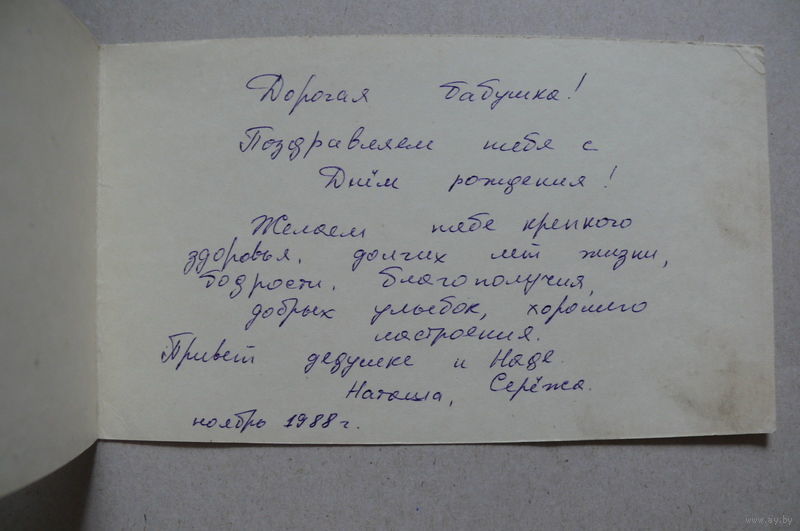 Дорогая бабушка!
Поздравляем тебя с
Днём рождения!
Желаем тебе крепкого
здоровья, долгих лет жизни,
бодрости, благополучия,
добрых улыбок, хорошего
настроения.
Привет дедушке и Наде.
Наташа, Серёжа.
ноябрь 1988 г.
www.ay.by